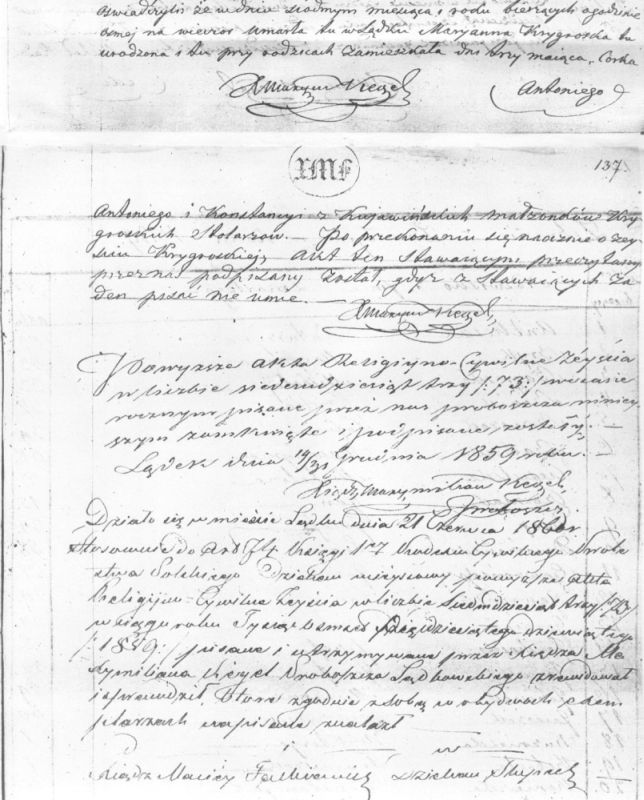 oświadczyli że w dniu siodmym miesiąca i roku bieżących o godzinie
osmej na wieczor umarła tu w Lądku Maryanna Krygroska tu
urodzona i tu przy rodzicach zamieszkała dni trzy maiąca, Corka
X Maxym Kegel
Antoniego
XMF
137
Antoniego i Konstancyi z Kujawińskich małzonków Kry
groskich Stolarzow. — Po przekonaniu się naocznie o zey
ściu Krygroskiej, Akt ten Stawaiącym przeczytany
przez nas podpisany został, gdyz z Stawaiących Ża
den pisać nie umie. —
X Maxym Kegel
Powyzsze Akta Religiyno-Cywilne Zeyścia
w liczbie siedemdziesiąt trzy /:73:/ w czasie
rocznym pisane przez nas proboszcza niniey
szym zamknięte i podpisane zostały. —
Lądek dnia 19/31 Grudnia 1859 roku. —
Xiądz Maxymilian Kegel
Proboszcz
Działo się w mieście Lądku dnia 21 Czerwca 1860 r
Stosownie do Art Księgi 1 Kodexu Cywilnego Króle
stwa Polskiego Dziekan mieyscowy powyzsze Akta
Religijno-Cywilne Zeyścia w liczbie Siedmdziesiąt trzy /:73/
w ciągu roku Tysiąc osmset Pięcdziesiątego dziewiątego
/:1859:/ pisane i utrzymywane przez Xiędza Ma
xymiliana Kegel Proboszcza Lądkowskiego zrewidował
i sprawdził, Które zgodnie z sobą w obydwoch exem
plarzach napisane znalazł
Xiądz Maciey Dziekan Słupecki